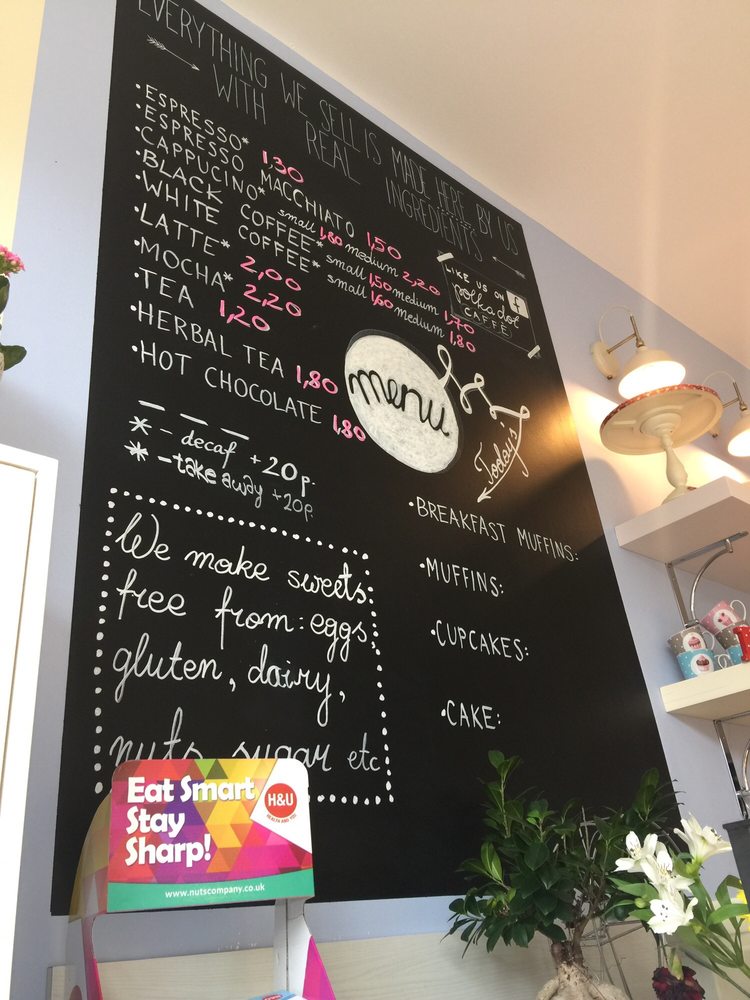 EVERYTHING WE SELL IS MADE HERE BY US
WITH REAL INGREDIENTS
•ESPRESSO* 1,30
•ESPRESSO MACCHIATO 1,50
•CAPPUCINO* small 1,80 medium 2,20
•BLACK COFFEE* small 1,50 medium 1,70
•WHITE COFFEE* small 1,60 medium 1,80
•LATTE* 2,00
•MOCHA* 2,20
•TEA 1,20
•HERBAL TEA 1,80
•HOT CHOCOLATE 1,80
* - decaf +20p.
* - take away +20p.
LIKE US ON f
polka dot
CAFFÈ
menu
Today's
•BREAKFAST MUFFINS:
•MUFFINS:
•CUPCAKES:
•CAKE:
We make sweets
free from: eggs,
gluten, dairy,
nuts, sugar etc
Eat Smart
Stay
Sharp!
H&U
HEALTH AND YOU
www.nutscompany.co.uk